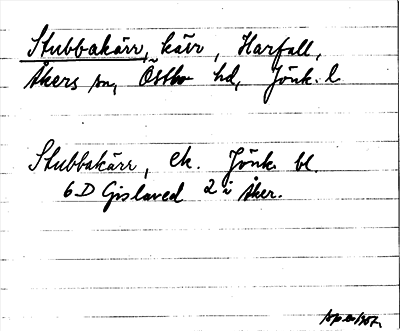 Stubbakärr, kärr, Harfall,
Åkers sn, Östbo hd, Jönk. l
Stubbakärr, ek. Jönk. bl.
6 D Gislaved 2 i Åker.